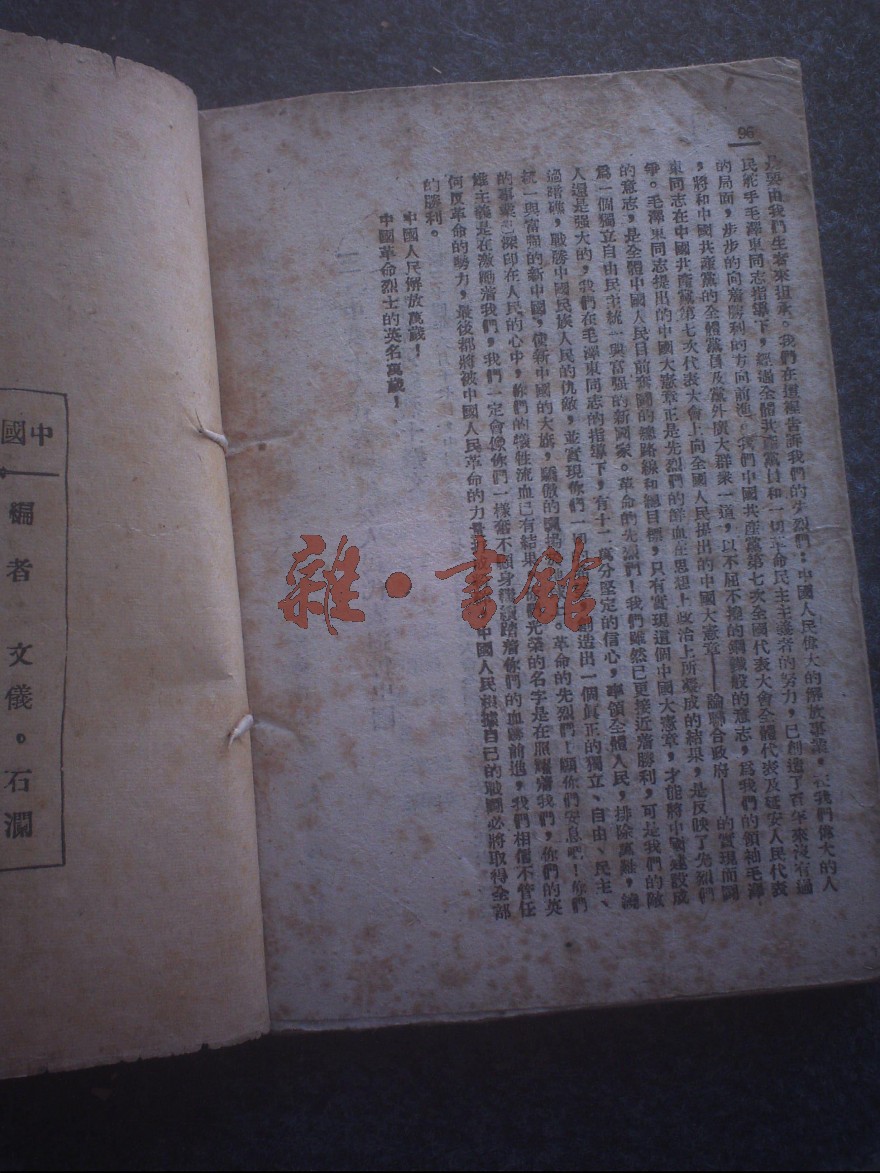 96
是要由我們生者來担承。我們在這裡告訴我們的先烈們：中國人民偉大的解放事業，在我們偉大的人
民舵手毛澤東同志指導下，經過全體共產黨員和一切革命民主主義者的努力，已創造了百年來沒有過
的局面，步步的向着勝利的方向前進。我們中國共產黨第七次全國代表大會全體代表及延安人民代表
，將和中國共產黨的全體黨員及黨外廣大群衆一道，以不屈不撓的鋼鐵般的意志，爲我們的領袖毛澤
東同志在中國共產黨第七次代表大會上向全國人民提出的中國大憲章——論聯合政府——的實現而鬪
爭。毛澤東同志提出的中國大憲章正是先烈們的鮮血在思想上政治上所凝成的結果，是反映了先烈們
的意志，是全體中國人民目前奮鬪的總路線和總目標，只有實現這個中國大憲章，才能將中國建設成
爲一個獨立自由民主統一與富强的新國家。革命的先烈們！我們雖然已更接近着勝利，可是我們的敵
人還是强大的，我們在毛澤東同志的指導下，有十二萬分堅定的信心，率領全體人民，排除萬難，繞
過暗礁，戰勝中國民族人民的仇敵，並實現你們一創造出一個眞正的獨立、自由、民主、
統一與富强的新中國，使新中國的大旗，驕傲的飄揚。革命的先烈們！願你們安息吧！你們
的事業已深印在人民的心中，你們的犧牲流血已有結果光榮的名字是在照耀着我們，你們的英
雄主義是在激勵着我們，我們一定會像你們一樣奮不顧身踏着你們的血跡前進，我們相信不管任
何反革命的勢力，最後都將被中國人民革命的力量中國人民根據自己的戰鬪必將取得全部
的勝利。
中國人民解放萬歲！
中國革命烈士的英名萬歲！
中國
編者 文儀。石瀾
雜·書館